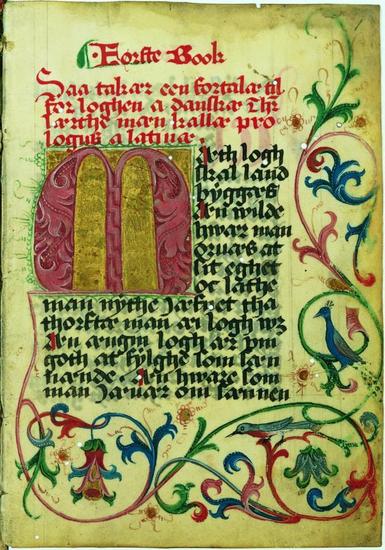 Forste Book
Saa takær een fortalæ til
for loghen a danskæ Thr
lærthe mæn kallæ pro
logus a latinæ.
Meth logh
skal land
byggæs
Æn wilde
hwar man
oruæs at
sit eghet
oc lathe
man nythe Jæfnet tha
thorftæ man æi logh wz
Æn ængin logh ær jæm
goth at fylghe som sæn
nænde. Æn hware som
man Jæuær om sannen